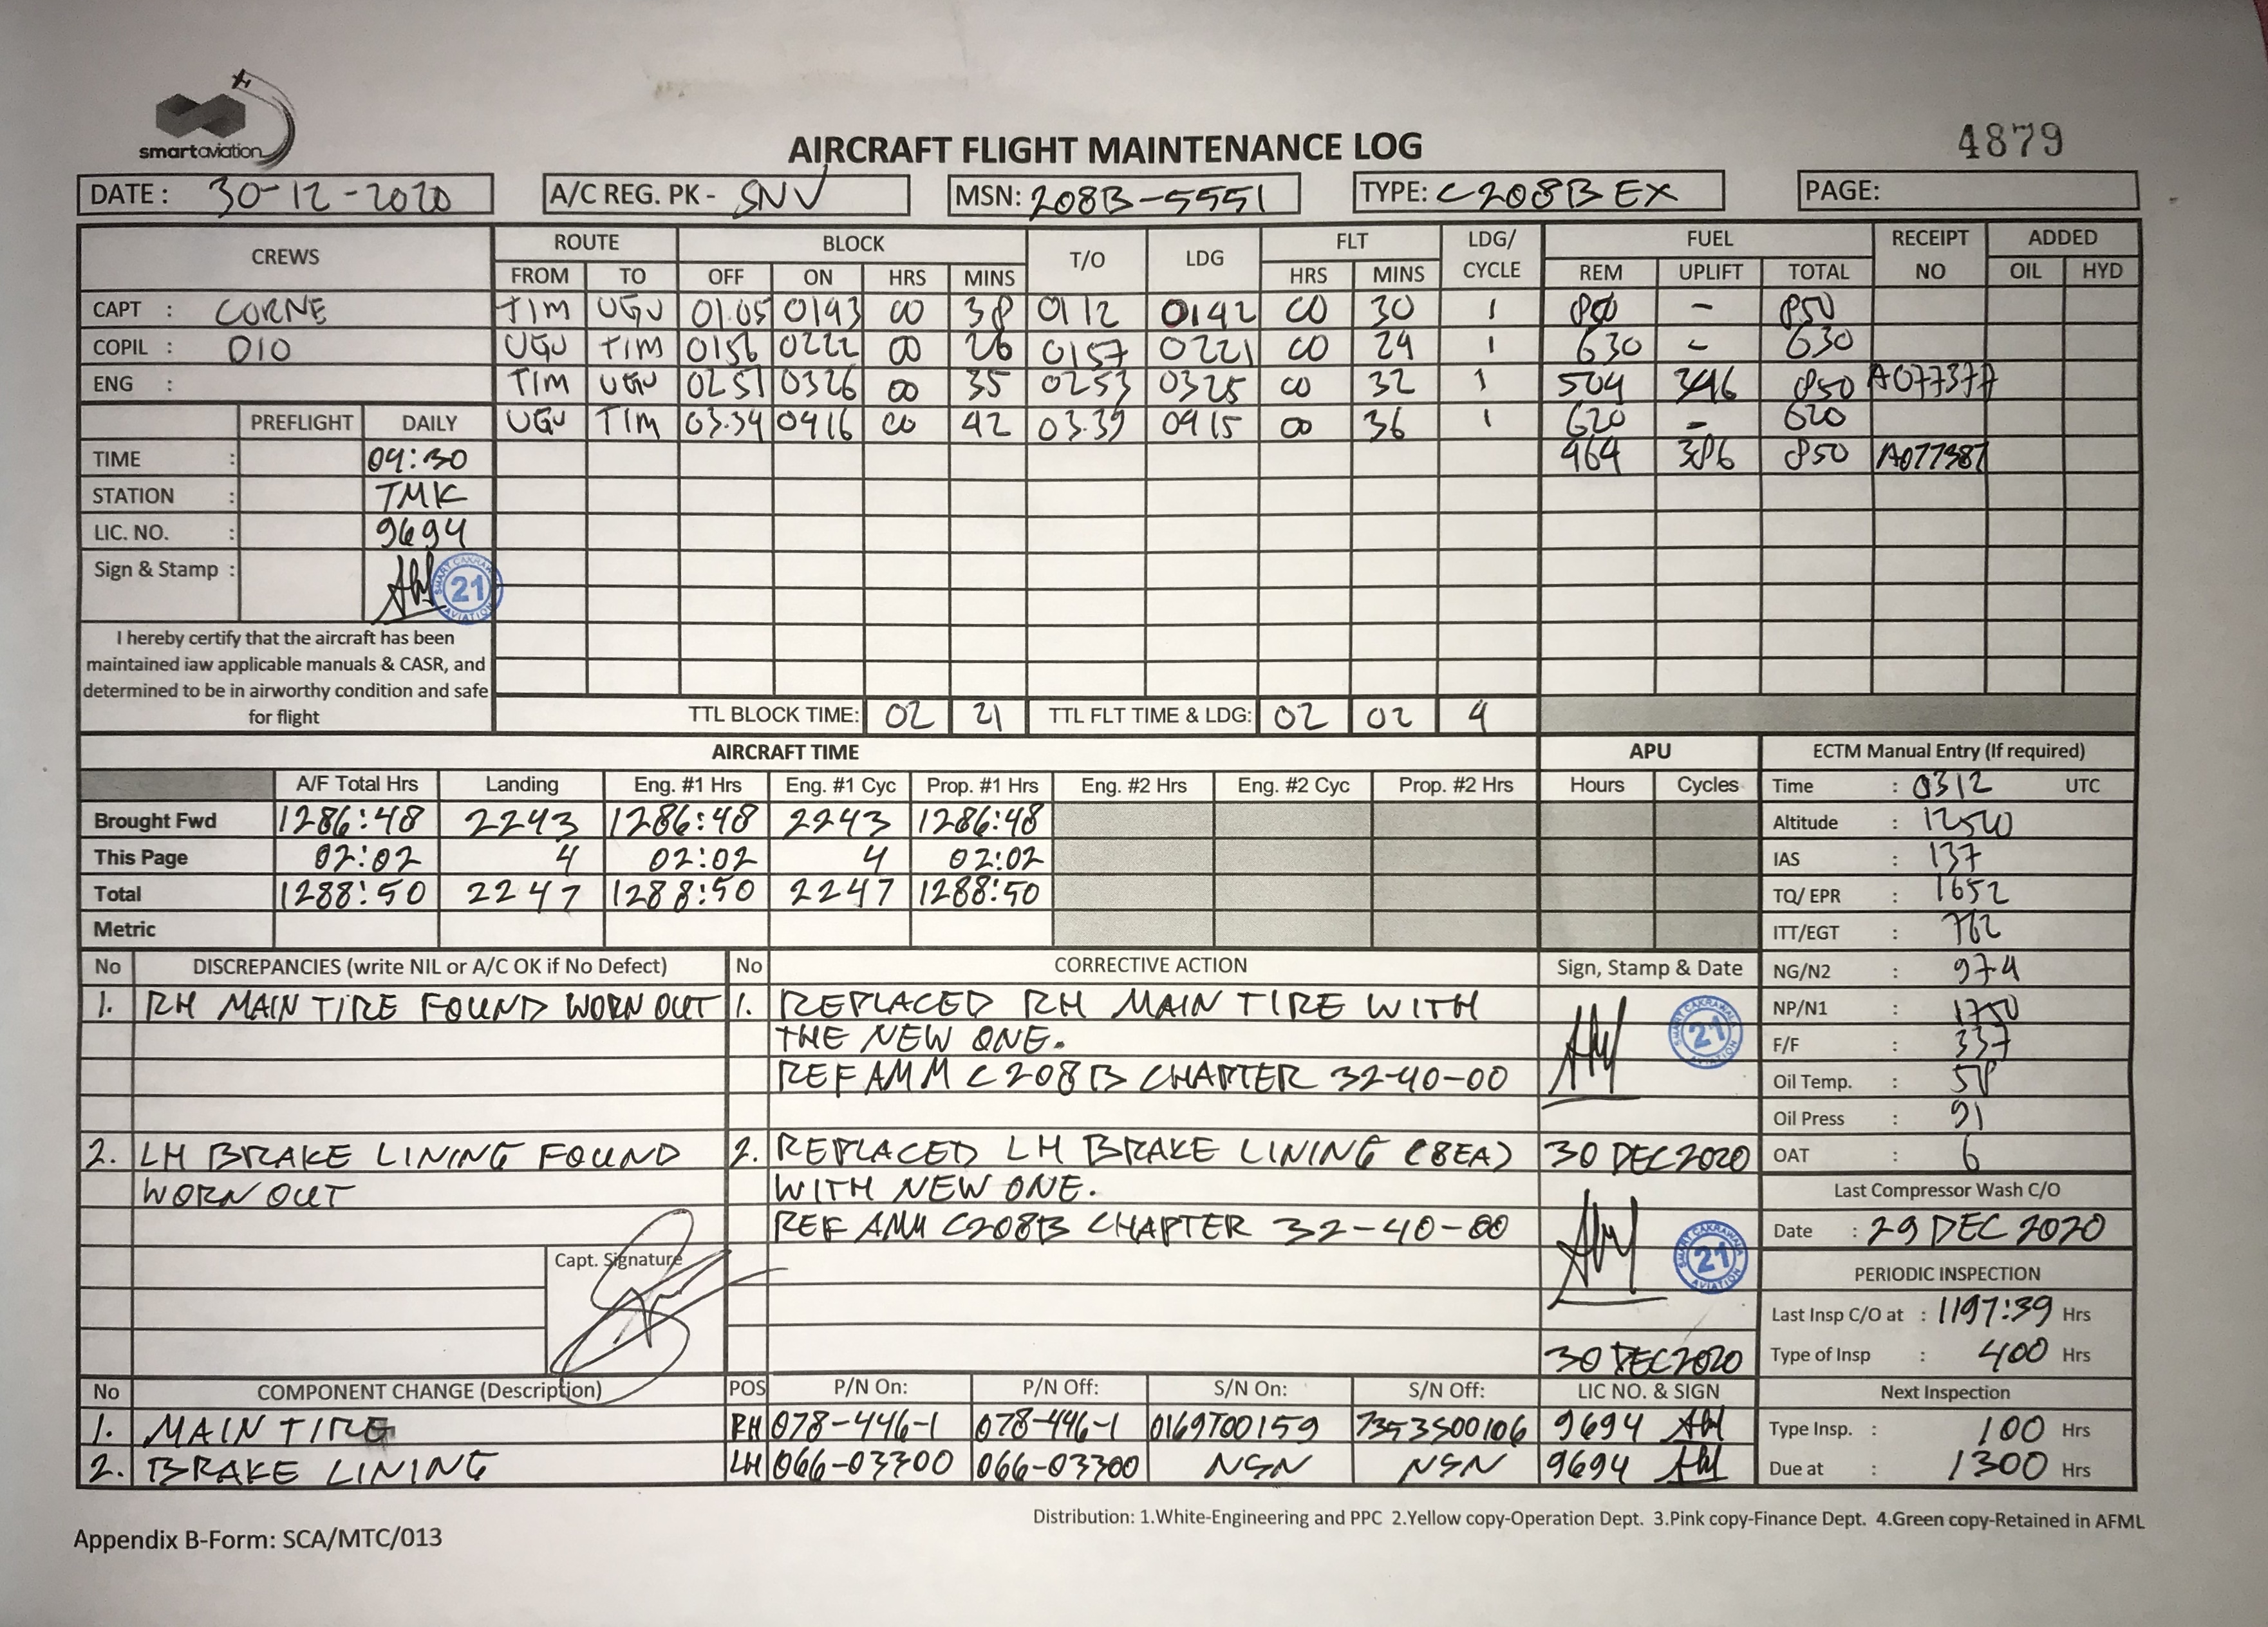 smartaviation
AIRCRAFT FLIGHT MAINTENANCE LOG
4879
DATE : 30-12-2020 A/C REG. PK - SNV MSN: 208B-5551 TYPE: C208B EX PAGE:
CREWS ROUTE BLOCK T/O LDG FLT LDG/ CYCLE FUEL RECEIPT NO ADDED
FROM TO OFF ON HRS MINS HRS MINS REM UPLIFT TOTAL OIL HYD
CAPT : CORNE TIM UGU 01.05 0143 00 38 0112 0142 00 30 1 850 - 850
COPIL : DIO UGU TIM 0156 0222 00 26 0157 0221 00 24 1 630 - 630
ENG : TIM UGU 0251 0326 00 35 0253 0325 00 32 1 504 346 850 A077377
PREFLIGHT DAILY UGU TIM 03.34 0416 00 42 03.39 0415 00 36 1 620 - 620
TIME : 09:30 464 386 850 A077387
STATION : TMK
LIC. NO. : 9694
Sign & Stamp :
SMART CAKRAWALA AVIATION 21
I hereby certify that the aircraft has been
maintained iaw applicable manuals & CASR, and
determined to be in airworthy condition and safe
for flight
TTL BLOCK TIME: 02 21 TTL FLT TIME & LDG: 02 02 4
AIRCRAFT TIME APU ECTM Manual Entry (If required)
A/F Total Hrs Landing Eng. #1 Hrs Eng. #1 Cyc Prop. #1 Hrs Eng. #2 Hrs Eng. #2 Cyc Prop. #2 Hrs Hours Cycles Time : 0312 UTC
Brought Fwd 1286:48 2243 1286:48 2243 1286:48 Altitude : 12500
This Page 02:02 4 02:02 4 02:02 IAS : 137
Total 1288:50 2247 1288:50 2247 1288:50 TQ/ EPR : 1652
Metric ITT/EGT : 762
No DISCREPANCIES (write NIL or A/C OK if No Defect) No CORRECTIVE ACTION Sign, Stamp & Date NG/N2 : 97.4
1. RH MAIN TIRE FOUND WORN OUT 1. REPLACED RH MAIN TIRE WITH NP/N1 : 1750
THE NEW ONE. SMART CAKRAWALA AVIATION 21 F/F : 337
REF AMM C208B CHAPTER 32-40-00 Oil Temp. : 58
Oil Press : 91
2. LH BRAKE LINING FOUND 2. REPLACED LH BRAKE LINING (8EA) 30 DEC 2020 OAT : 6
WORN OUT WITH NEW ONE. Last Compressor Wash C/O
REF AMM C208B CHAPTER 32-40-00 Date : 29 DEC 2020
Capt. Signature SMART CAKRAWALA AVIATION 21
PERIODIC INSPECTION
Last Insp C/O at : 1197:39 Hrs
30 DEC 2020 Type of Insp : 400 Hrs
No COMPONENT CHANGE (Description) POS P/N On: P/N Off: S/N On: S/N Off: LIC NO. & SIGN Next Inspection
1. MAIN TIRE RH 078-446-1 078-446-1 0169T00159 7353S00106 9694 Type Insp. : 100 Hrs
2. BRAKE LINING LH 066-03300 066-03300 NSN NSN 9694 Due at : 1300 Hrs
Distribution: 1.White-Engineering and PPC 2.Yellow copy-Operation Dept. 3.Pink copy-Finance Dept. 4.Green copy-Retained in AFML
Appendix B-Form: SCA/MTC/013